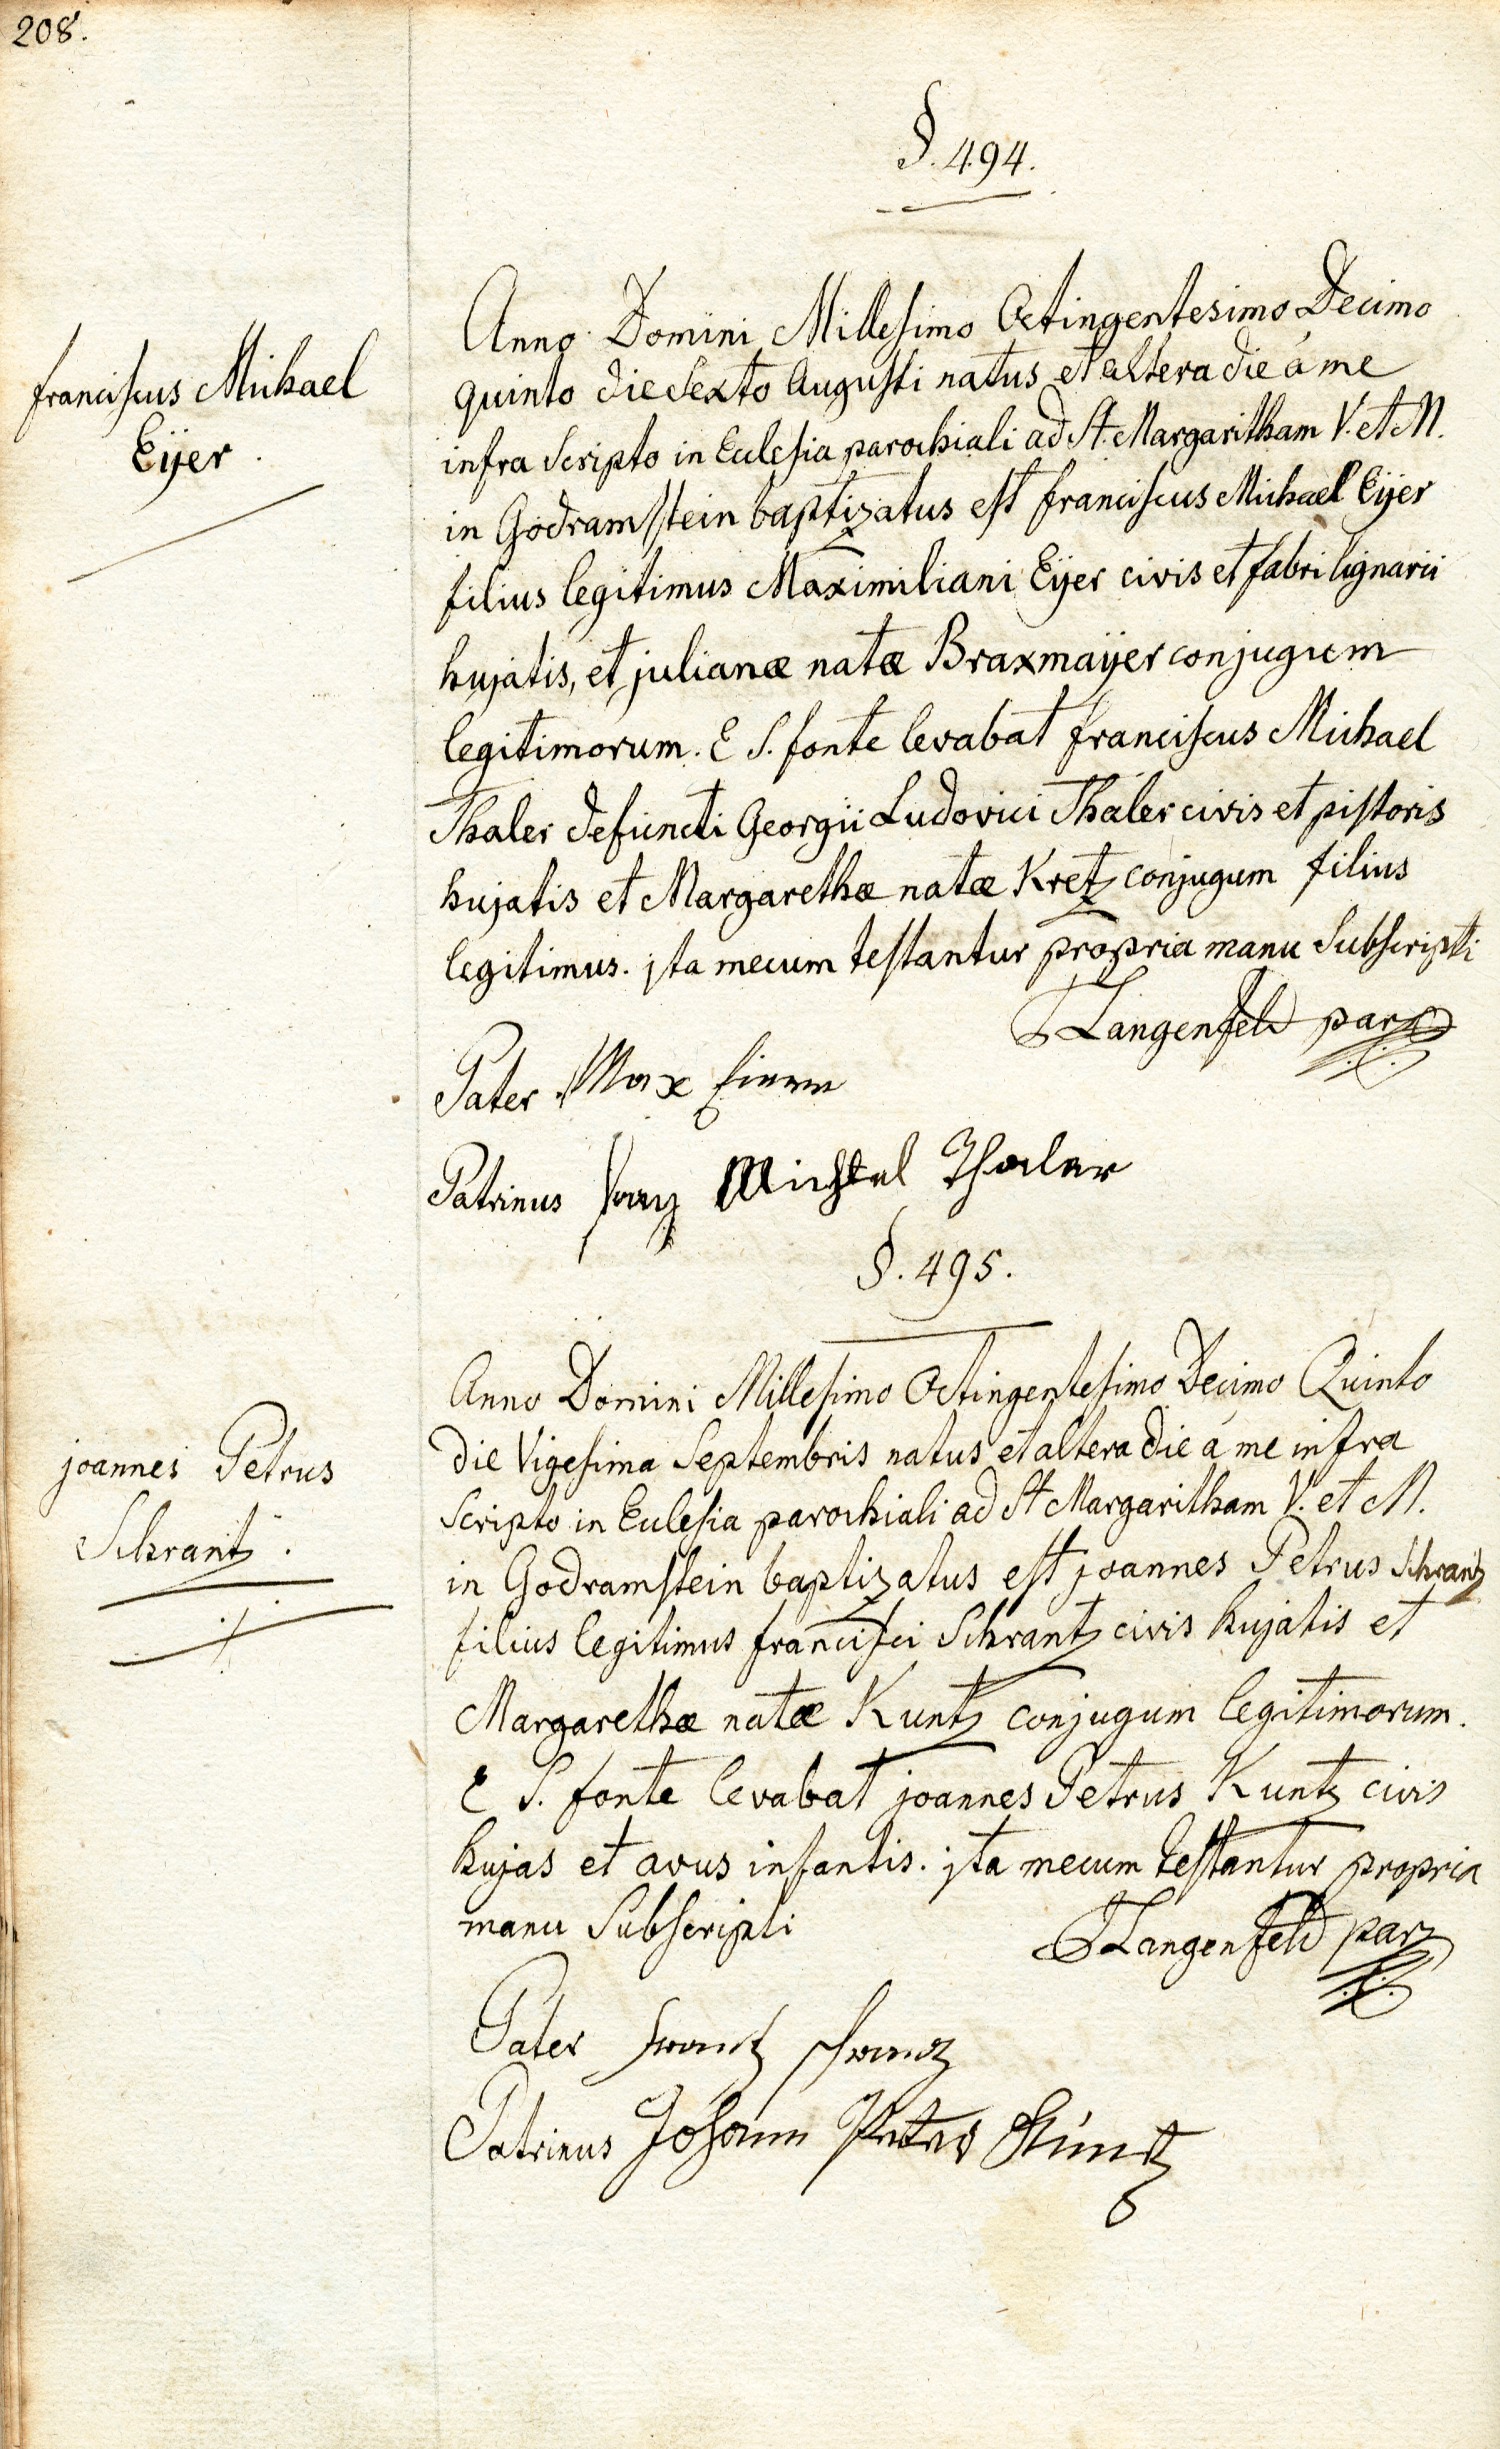 208.
§. 494.
franciscus Michael
Eijer.
Anno Domini Millesimo Octingentesimo Decimo
quinto die sexto Augusti natus et altera die á me
infra Scripto in Eclesia parochiali ad St. Margaritham V. et M.
in Godramstein baptizatus est franciscus Michael Eijer
filius legitimus Maximiliani Eijer civis et fabri lignarii
hujatis, et julianæ natæ Braxmaÿer conjugum
legitimorum. E S. fonte levabat franciscus Michael
Thaler defuncti Georgii Ludovici Thaler civis et pistoris
hujatis et Margarethæ natæ Kretz conjugum filius
legitimus. jta mecum testantur propria manu Subscripti
Langenfeld par
Pater Max
Patrinus franz Michael Thaler
§. 495.
joannes Petrus
Schrantz.
Anno Domini Millesimo Octingentesimo Decimo Quinto
die Vigesima Septembris natus et altera die á me infra
Scripto in Eclesia parochiali ad St Margaritham V. et M.
in Godramstein baptizatus est joannes Petrus Schrantz
filius legitimus francisci Schrantz civis hujatis et
Margarethæ natæ Kuntz conjugum legitimorum.
E S. fonte levabat joannes Petrus Kuntz civis
hujas et avus infantis. jta mecum testantur propria
manu Subscripti
Langenfeld par
Pater frantz schranz
Patrinus Johann Peter Kuntz